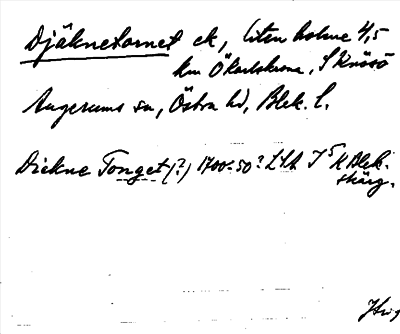 Djäknetornet ek, liten holme 4,5
km Ö Karlskrona, S Knösö
Augerums sn, Östra hd, Blek. l.
Dickne Tonget (?) 1700-50? LSA I 5 K Blek.
skärg.